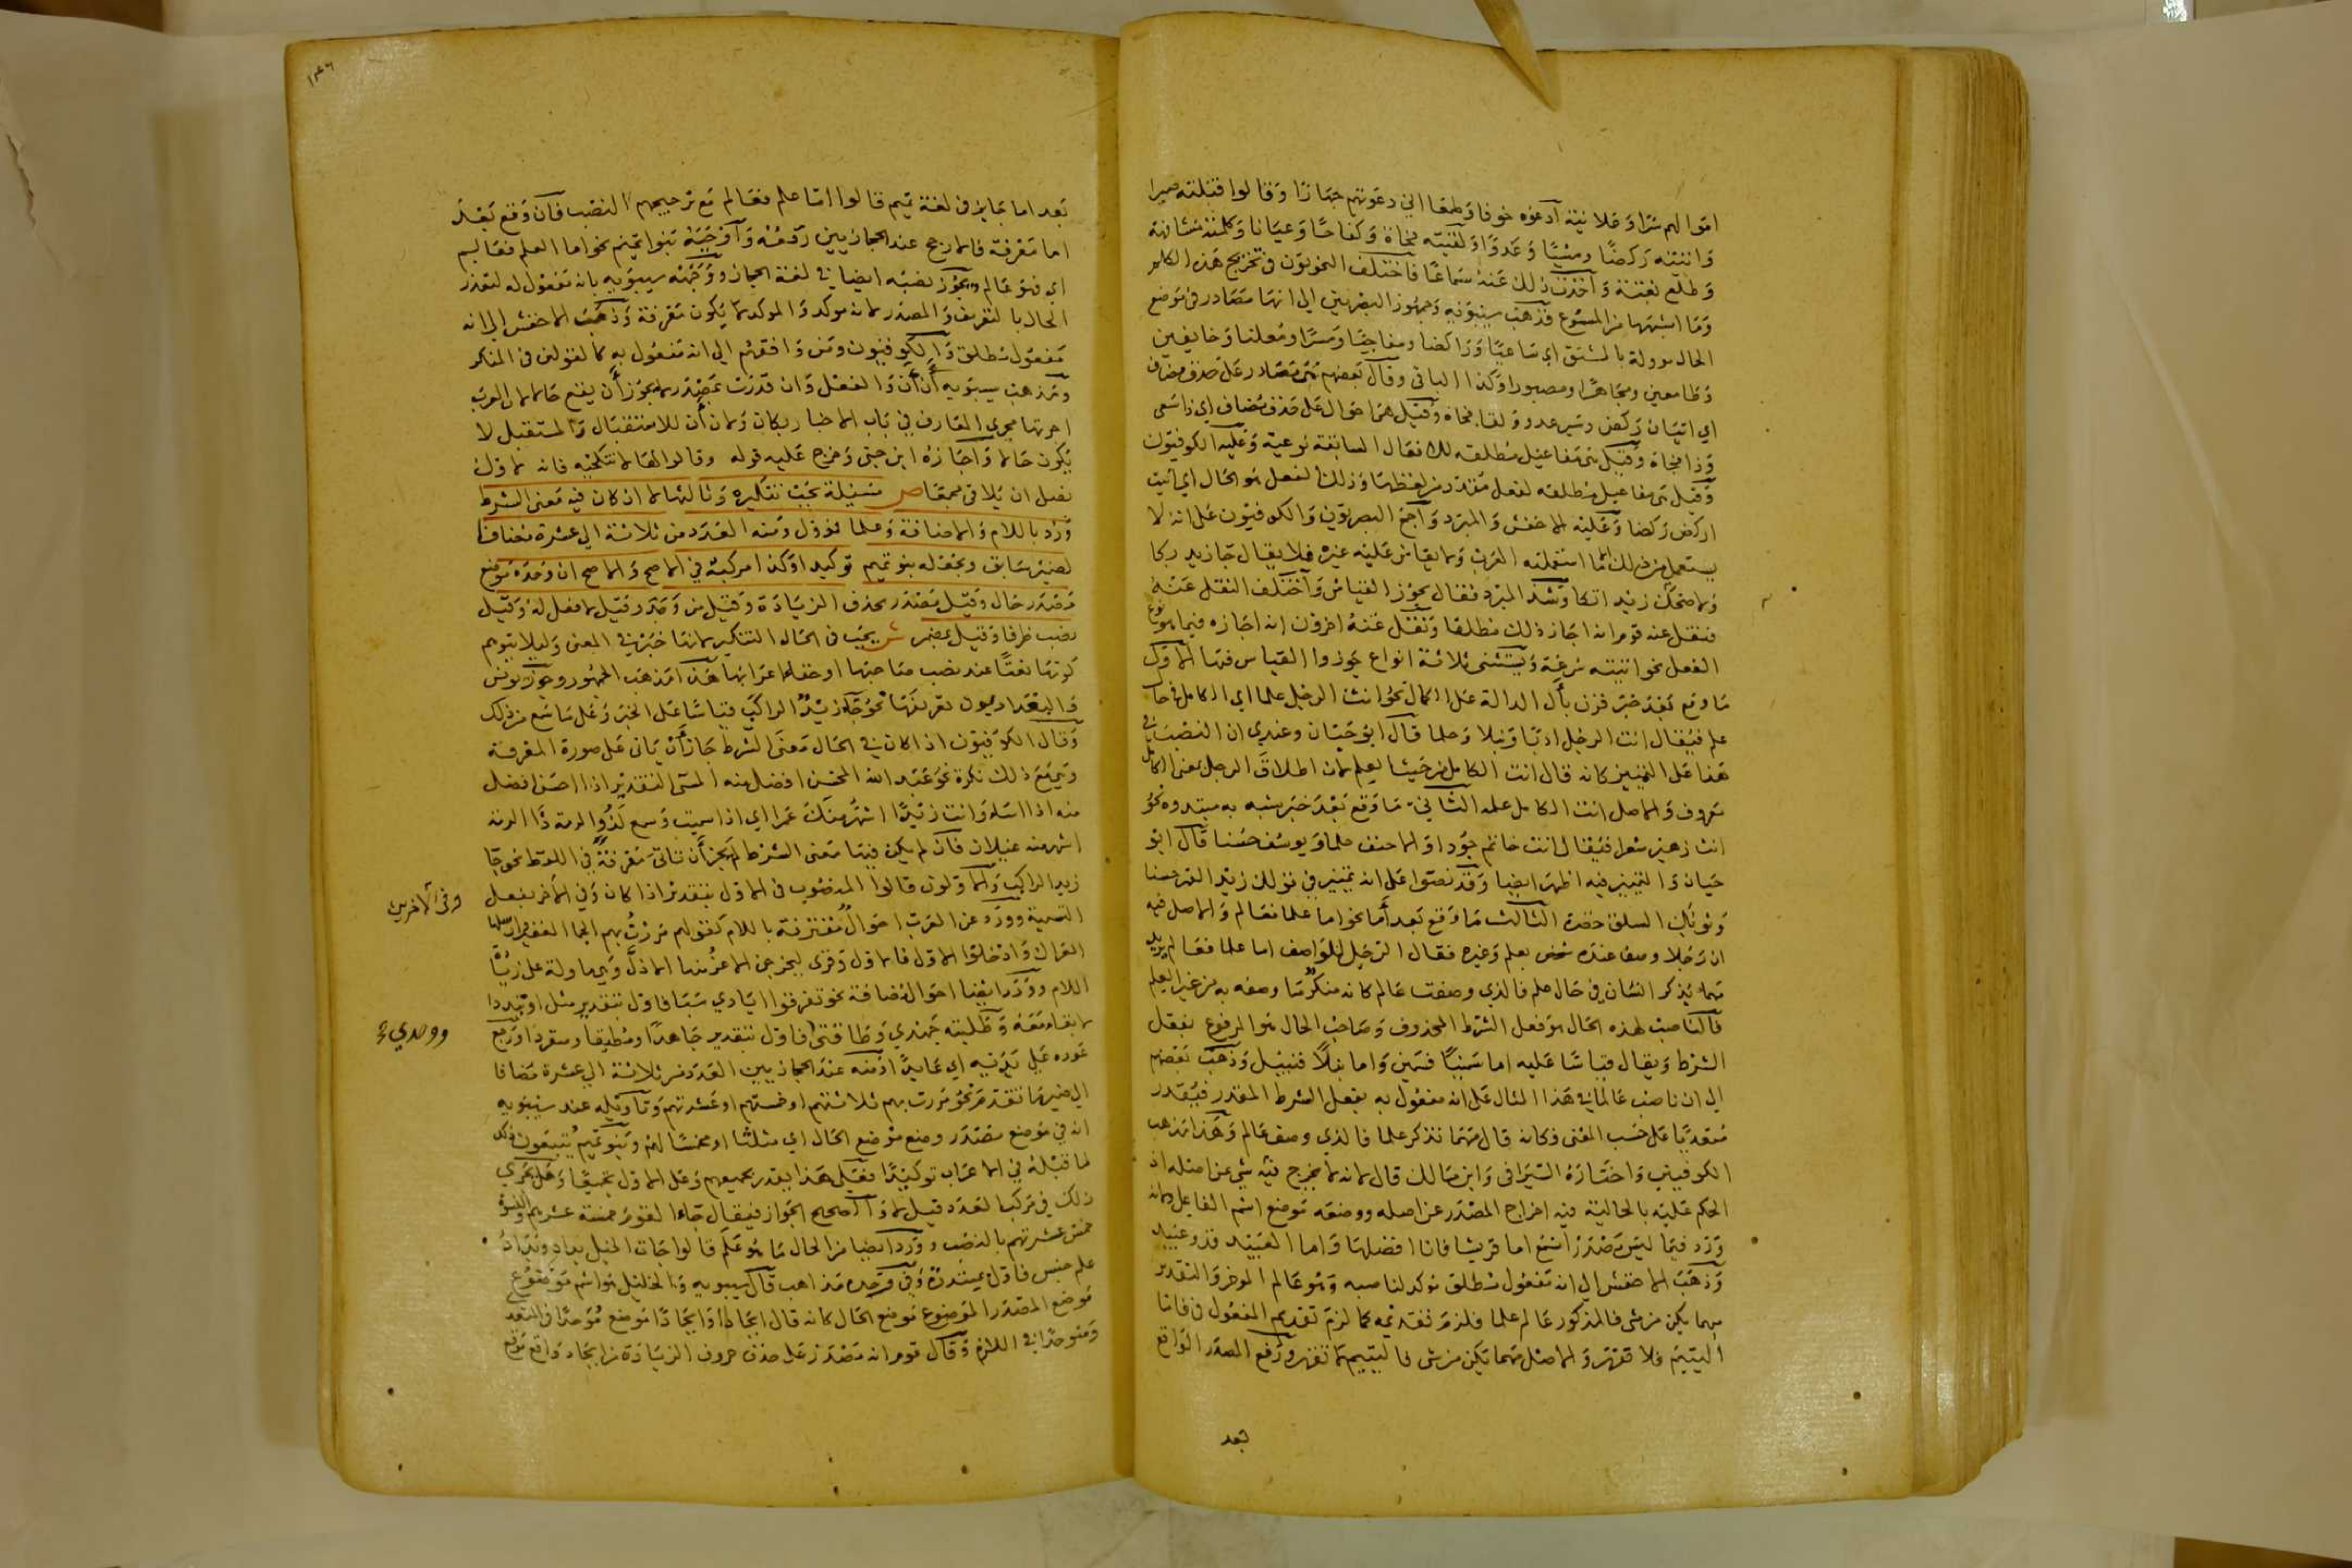 اموالهم سرا وعلانية ادعوه خوفا وطمعا اني دعوتهم جهارا وقالوا قتلته صبرا
واتيته ركضا ومشيا وعدوا ولقيته فجاة وكفاحا وعيانا وكلمته مشافهة
وطلع بغتة واخذت ذلك عنه سماعا فاختلف النحويون في تخريج هذه الكلم
وما اشبهها من المسموع فذهب سيبويه وجمهور البصريين الي انها مصادر في موضع
الحال موولة بالمشتق اي ساعيا وراكضا ومفاجيا ومسرا ومعلنا وخايفين
وطامعين ومجاهرا ومصبورا وكذا الباقي وقال بعضهم هي مصادر على حذف مضاف
اي اتيان ركض وسير عدو ولقا فجاة وقيل هي احوال على حذف مضاف اي ذا سعي
وذا فجاة وقيل هي مفاعيل مطلقة للافعال السابقة نوعية وعليه الكوفيون
وقيل هي مفاعيل مطلقة لفعل مقدر من لفظها وذلك الفعل هو الحال اي اتيت
اركض ركضا وعليه الاخفش والمبرد واجمع البصريون والكوفيون على انه لا
يستعمل من ذلك الا ما استعملته العرب ولا يقاس عليه غيره فلا يقال جا زيد بكا
ولا ضحك زيد اتكا وشذ المبرد فقال يجوز القياس واختلف النقل عنه
فنقل عنه قوم انه اجاز ذلك مطلقا ونقل عنه اخرون انه اجازه فيما هو نوع
الفعل نحو اتيته سرعة ويستثني ثلاثة انواع جوزوا القياس فيها الاول
ما وقع بعد خبر قرن بأل الدالة على الكمال نحو انت الرجل علما اي الكامل في حال
علم فيقال انت الرجل ادبا ونبلا وحلما قال ابو حيان وعندي ان النصب في
هذا على التمييز كانه قال انت الكامل من حيث العلم لان اطلاق الرجل بمعنى الكامل
معروف والاصل انت الكامل علمه الثاني ما وقع بعد خبر يشبه به مبتدوه نحو
انت زهير شعرا فيقال انت حاتم جودا والاحنف حلما ويوسف حسنا قال ابو
حيان والتمييز فيه اظهر ايضا وقد نصوا على انه تمييز في قولك زيد القمر حسنا
وثوبك السلق خضرة الثالث ما وقع بعد أما نحو اما علما فعالم والاصل فيه
ان رجلا وصف عنده شخص بعلم وغيره فقال الرجل للواصف اما علما فعالم يريد
مهما يذكر انسان في حال علم فالذي وصفت عالم كانه منكر ما وصفه به من غير العلم
فالناصب لهذه الحال هو فعل الشرط المحذوف وصاحب الحال هو المرفوع بفعل
الشرط ويقال قياسا عليه اما سمنا فسمين واما نبلا فنبيل وذهب بعضهم
الي ان ناصب عالما في هذا المثال على انه مفعول به بفعل الشرط المقدر فيقدر
متعديا على حسب المعنى فكانه قال مهما تذكر علما فالذي وصف عالم وهذا مذهب
الكوفيين واختاره السيرافي وابن مالك قال لانه لا يخرج فيه شي عن اصله اذ
الحكم عليه بالحالية فيه اخراج المصدر عن اصله ووضعه موضع اسم الفاعل ولانه
ورد فيما ليس مصدر اسمع اما قريشا فانا افضلها واما العبيد فذو عبيد
وذهب الاخفش الي انه مفعول مطلق موكد لناصبه وهو عالم الموخر والتقدير
مهما يكن من شي فالمذكور عالم علما فلزم تقديمه كما لزم تقديم المفعول في فاما
اليتيم فلا تقهر والاصل مهما يكن من شي فاليتيم لا تقهر ورفع المصدر الواقع
بعد
١٤٦
بعد اما جايز في لغة تميم قالوا اما علم فعالم مع ترجيحهم النصب فان وقع بعد
اما معرفة فالارجح عند الحجازيين رفعه واوجبه بنو تميم نحو اما العلم فعالم
اي فهو عالم ويجوز نصبه ايضا في لغة الحجاز ووجهه سيبويه بانه مفعول له لتعذر
الحال بالتعريف والمصدر لانه موكد والموكد لا يكون معرفة وذهب الاخفش الي انه
مفعول مطلق والكوفيون ومن وافقهم الي انه مفعول به كالقولين في المنكر
ومذهب سيبويه أن أن والفعل وان قدرت بمصدر لا يجوز أن يقع حالا لان العرب
اجرتها مجري المعارف في باب الاخبار بكان ولان أن للاستقبال والمستقبل لا
يكون حالا واجازه ابن جني وخرج عليه قوله وقالوا لها لا تنكحيه فانه لاول
نصل ان يلاقي مجمعا ص مسيلة يجب تنكيره وثالثها لا ان كان فيه معنى الشرط
وورد باللام والاضافة وعلما فؤول ومنه العدد من ثلاثة الي عشرة مضافا
لضمير سابق ويجعله بنو تميم توكيدا وكذا مركبه في الاصح والاصح ان وحده موضع
مصدر حال وقيل مصدر بحذف الزيادة وقيل من وحد وقيل لا فعل له وقيل
نصب ظرفا وقيل بمضمر ش يجب في الحال التنكير لانها خبر في المعنى وليلا يتوهم
كونها نعتا عند نصب صاحبها او خفا اعرابها هذا مذهب الجمهور وجوز يونس
والبغداديون تعريفها نحو جا زيد الراكب قياسا على الخبر وعلى ما سمع من ذلك
وقال الكوفيون اذا كان في الحال معنى الشرط جاز أن ياتي على صورة المعرفة
وهي مع ذلك نكرة نحو عبد الله المحسن افضل منه المسي التقدير اذا احسن افضل
منه اذا اسا وانت زيدا اشهر منك عمرا اي اذا سميت وسمع لذو الرمة ذا الرمة
اشهر منه غيلان فان لم يكن فيها معنى الشرط لم يجز أن تاتي معرفة في اللفظ نحو جا
زيد الراكب والاولون قالوا المنصوب في الاول بتقدير اذا كان وفي الأخر بفعل
وفي الآخرين
التسمية وورد عن العرب احوال مقترنة باللام كقولهم مررت بهم الجما الغفير ارسلها
العراك وادخلوا الاول فالاول وقري ليخرجن الاعز منها الاذل وهي ماولة على زيادة
اللام وورد ايضا احوال مضافة نحو تفرقوا ايادي سبا فاول بتقدير مثل او تبددا
لا بقاء معه وطلبته جهدي وطاقتي فاول بتقدير جاهدا ومطيقا ومنفردا ورجع
ووحدي
عوده على بدئه اي عايدا ومنه عند الحجازيين العدد من ثلاثة الي عشرة مضافا
الي ضمير ما تقدم نحو مررت بهم ثلاثتهم او خمستهم او عشرتهم وتاويله عند سيبويه
انه في موضع مصدر وضع موضع الحال اي مثلثا او مخمسا لهم وبنو تميم يتبعون ذلك
لما قبله في الاعراب توكيدا فعلى هذا يقدر بجميعهم وعلى الاول بجميعا وهل يجري
ذلك في مركب العدد قيل لا والصحيح الجواز فيقال جاء القوم خمسة عشرهم والنسوة
خمس عشرتهن بالنصب وورد ايضا من الحال ما هو علم قالوا جات الخيل بداد وبداد
علم جنس فاول بمتبددة وفي وحده مذاهب قال سيبويه والخليل هو اسم موضوع
موضع المصدر الموضوع موضع الحال كانه قال ايحادا وايحادا موضع موحدا في المتعدي
ومتوحدا في اللازم وقال قوم انه مصدر على حذف حروف الزيادة من ايحاد واقع موقع